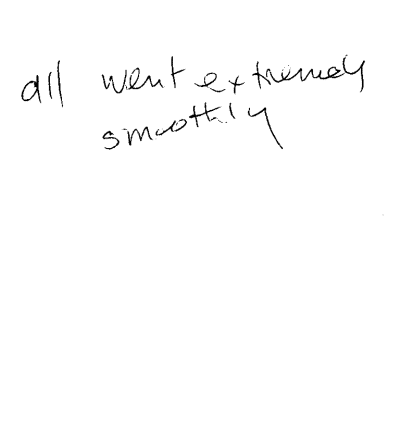 all went extremely
smoothly